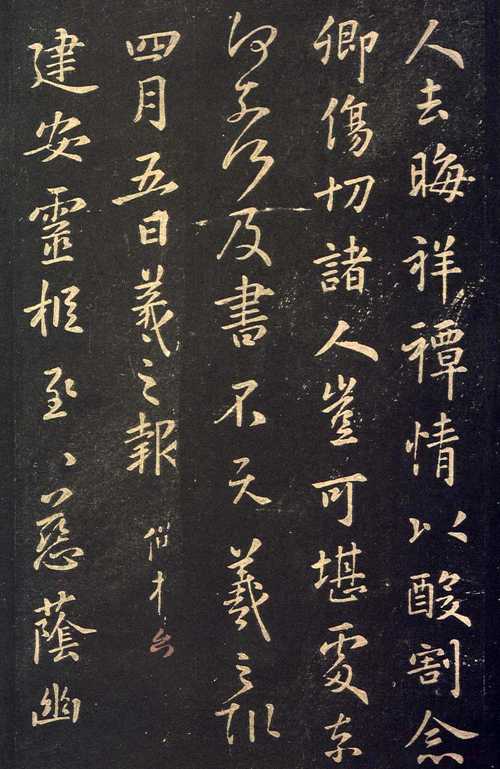 人去晦祥禫情以酸割念
卿傷切諸人豈可堪處奈
何奈何及書不羲之報
四月五日羲之報
建安靈柩至、慈蔭幽